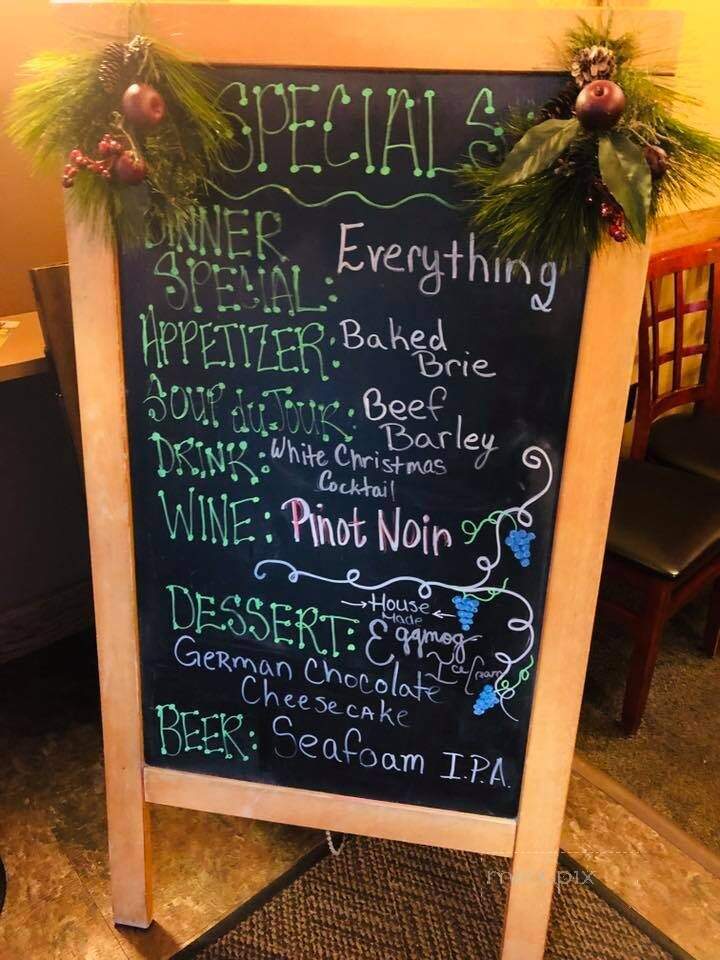 SPECIALS
DINNER SPECIAL: Everything
APPETIZER: Baked
Brie
SOUP du JOUR: Beef
Barley
DRINK: White Christmas
Cocktail
WINE: Pinot Noir
DESSERT: →House←
Made
Eggnog
Ice Cream
German Chocolate
Cheesecake
BEER: Seafoam I.P.A.